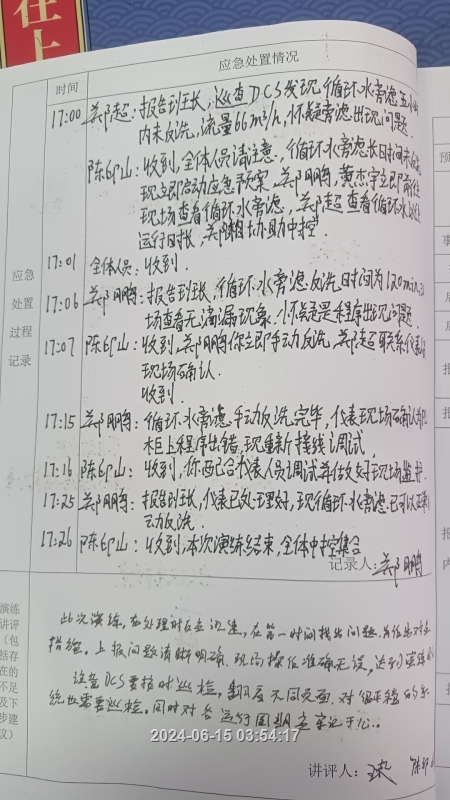 在上
应急处置情况
时间
17:00
报告班长,巡查DCS发现循环水旁滤五小时
内未反洗,流量66m³/h,怀疑旁滤出现问题.
陈邱山:收到,全体人员请注意,循环水旁滤长时间未反洗
现立即启动应急预案,郑鹏,黄杰宇立即前往
现场查看循环水旁滤,查看循环水
运行时长,协助中控.
17:01 全体人员:收到.
17:06 报告班长,循环水旁滤反洗时间为120min,现
场查看无滴漏现象.怀疑是程序出现问题.
17:07 陈邱山:收到,鹏你立即手动反洗,联系仪表
现场确认.
收到.
17:15 循环水旁滤手动反洗完毕,仪表现场确认
柜上程序出错,现重新接线调试.
17:16 陈邱山:收到,你配合仪表人员调试并做好现场监护
17:25 报告班长,仪表已处理好,现循环水旁滤已可以正常
动反洗.
17:26 陈邱山:收到,本次演练结束,全体中控集合
记录人:
应急
处置
过程
记录
演练
讲评
(包
括存
在的
不足
及下
步建
议)
此次演练,在处理时反应迅速,在第一时间找出问题,并作出对应
措施.上报问题清晰明确.现场操作准确无误,达到演练
DCS要按时巡检,翻阅不同页面.对
统也需要巡检.同时对各运行周期应牢记于心.
2024-06-15 03:54:17
讲评人: